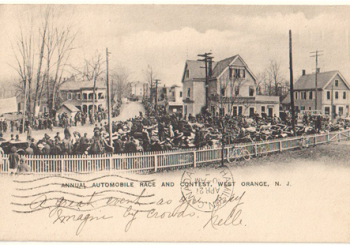 ANNUAL AUTOMOBILE RACE AND CONTEST, WEST ORANGE, N. J.
A great event as you may
imagine by crowds. Nelle.